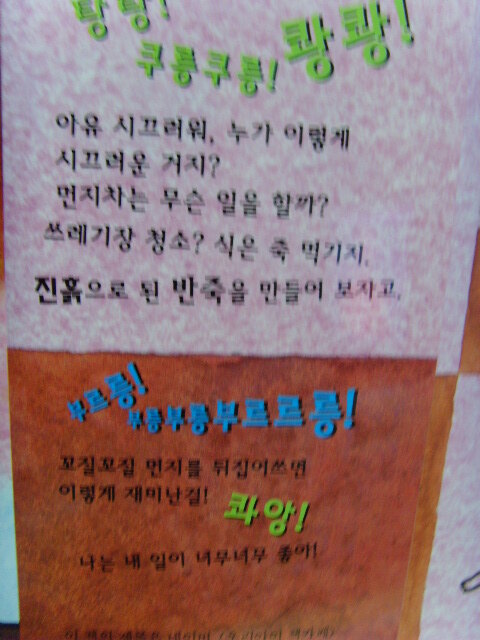 탕탕!
쿠릉쿠릉! 쾅쾅!
아유 시끄러워, 누가 이렇게
시끄러운 거지?
먼지차는 무슨 일을 할까?
쓰레기장 청소? 식은 죽 먹기지.
진흙으로 된 반죽을 만들어 보자고.
부르릉! 부릉부릉부르르릉!
꼬질꼬질 먼지를 뒤집어쓰면
이렇게 재미난걸!
콰앙!
나는 내 일이 너무너무 좋아!